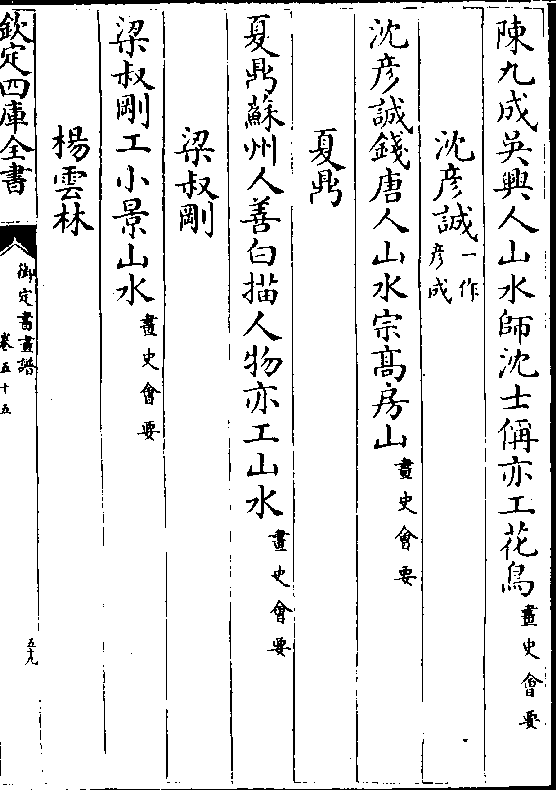 陳九成吳興人山水師沈士偁亦工花鳥畫史會要
沈彥誠一作彥成
沈彥誠錢唐人山水宗髙房山畫史會要
夏鼎
夏鼎蘇州人善白描人物亦工山水畫史會要
梁叔剛
梁叔剛工小景山水畫史會要
楊雲林
欽定四庫全書
御定書畫譜
卷五十五
五九